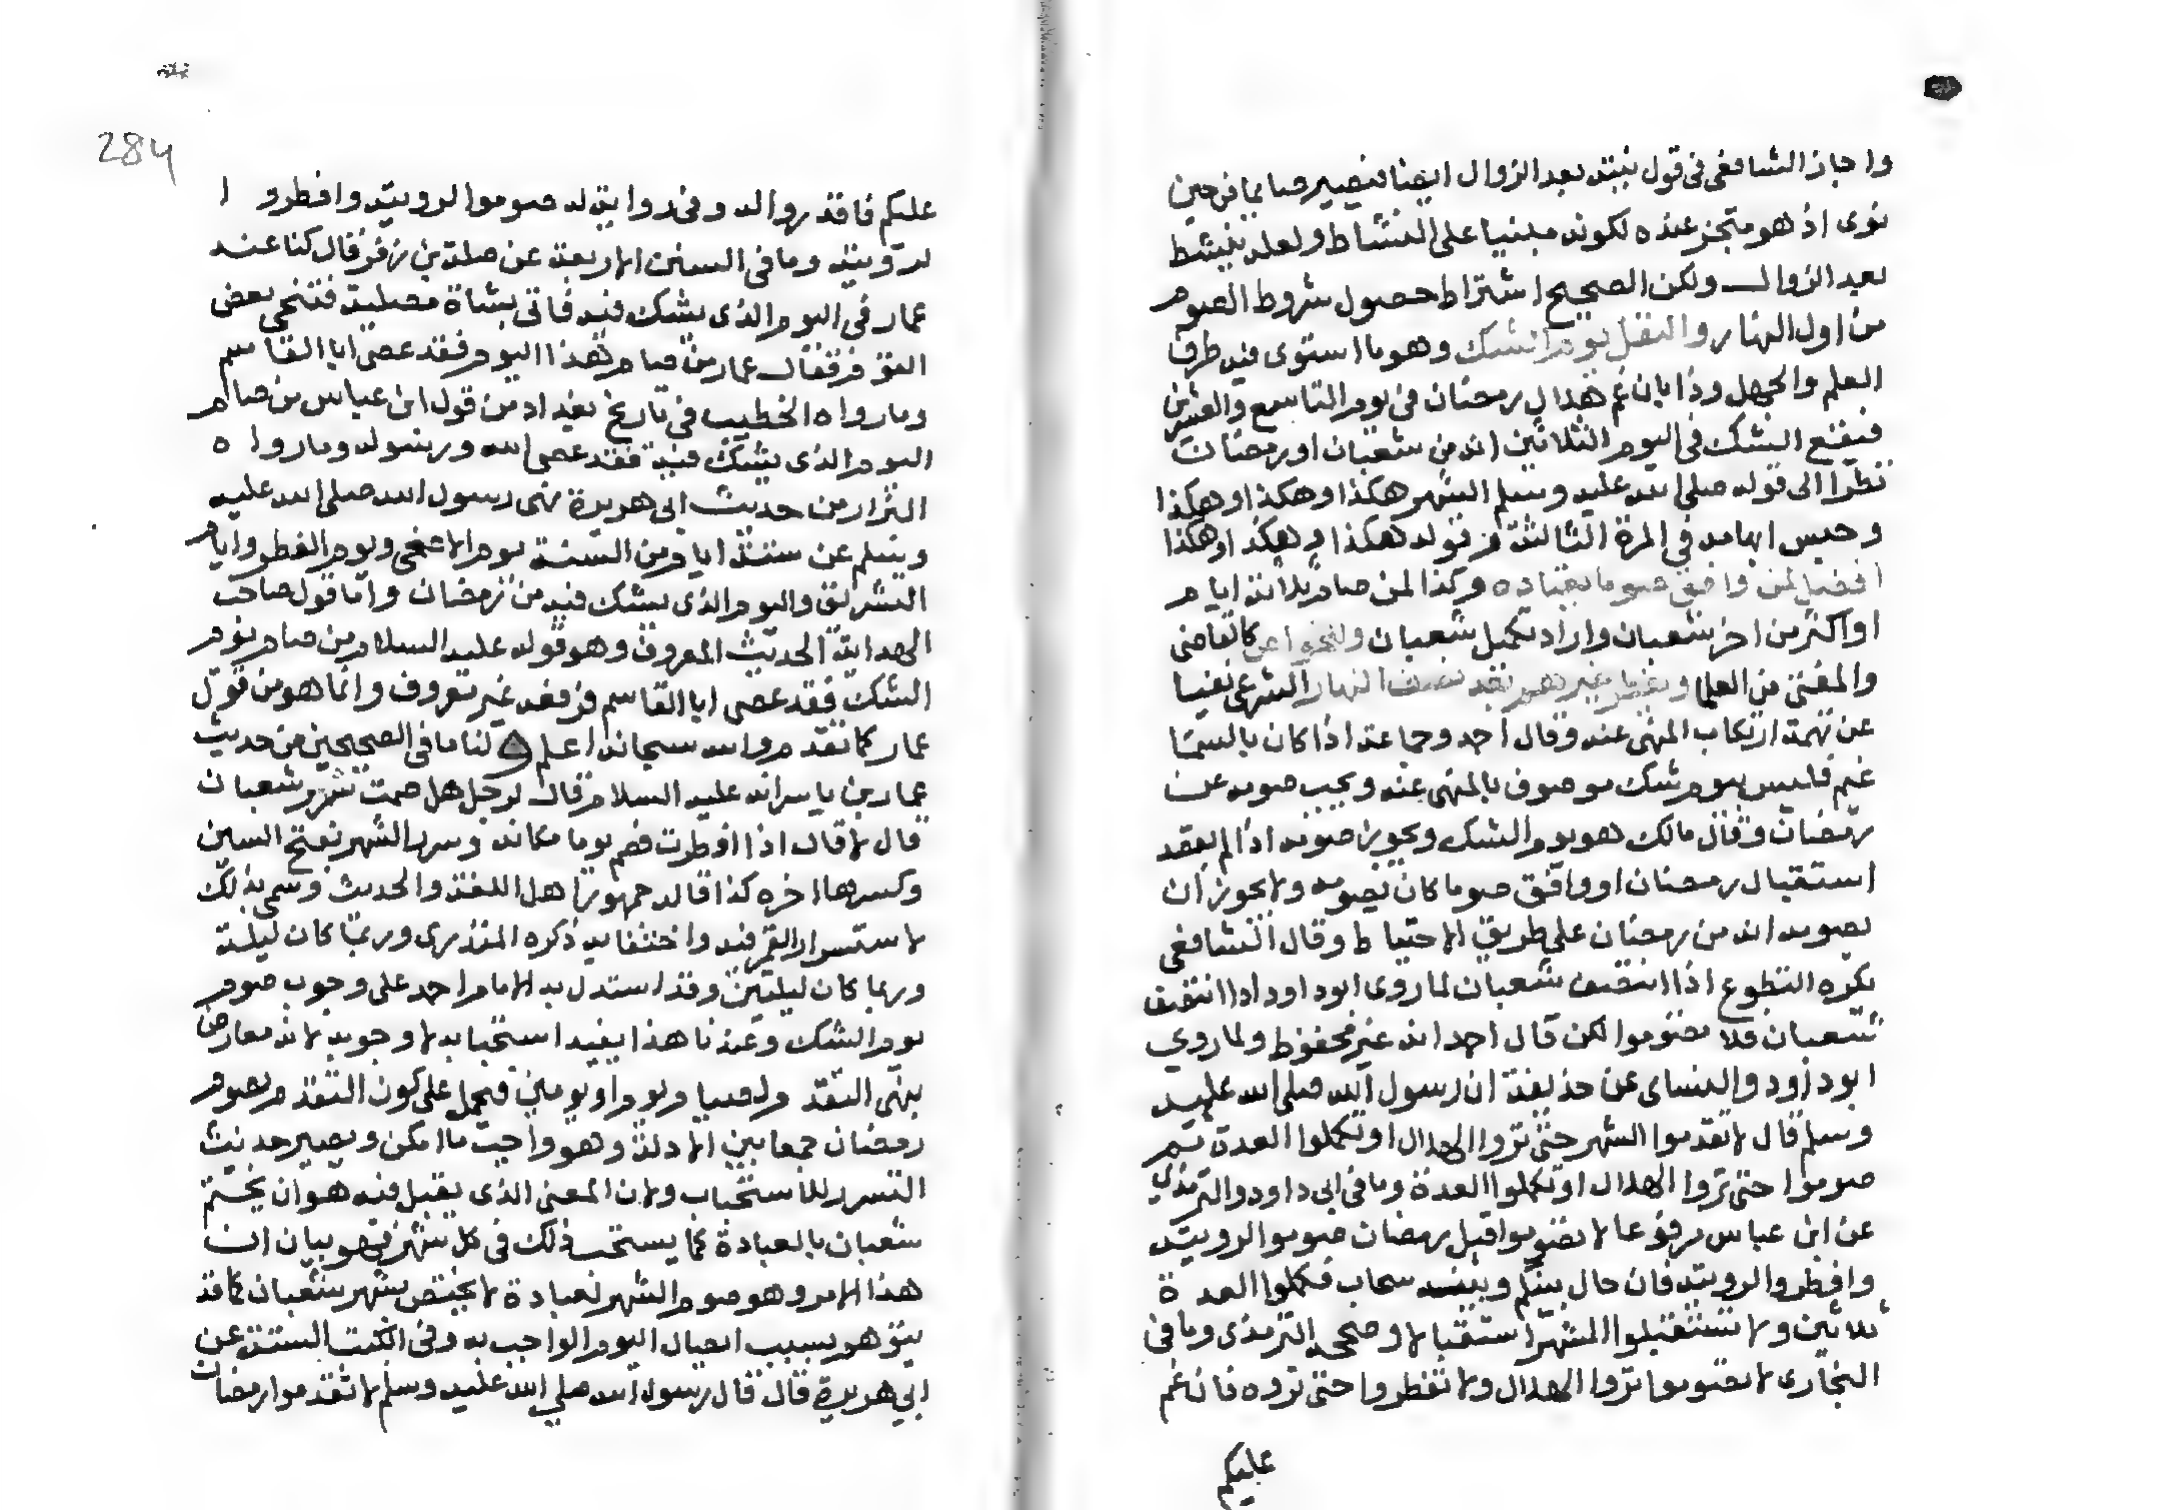 واجاز الشافعي في قول بنيته بعد الزوال ايضا فيصير صائما من حين
نوى اذ هو متجز عنده لكونه مبنيا على النشاط ولعله ينشط
بعد الزوال ولكن الصحيح اشتراط حصول شروط الصوم
من اول النهار والنفل يوم الشك وهو ما استوى فيه طرف
العلم والجهل وذا بان غم هلال رمضان في يوم التاسع والعشرين
فيقع الشك في اليوم الثلاثين انه من شعبان او رمضان
نظرا الى قوله صلى الله عليه وسلم الشهر هكذا وهكذا وهكذا
وحبس ابهامه في المرة الثالثة من قوله هكذا وهكذا وهكذا
افضل لمن وافق صوما يعتاده وكذا لمن صام ثلاثة ايام
او اكثر من اخر شعبان واراد تكميل شعبان وللخواص كالقاضي
والمفتي من العلما ويفطر غيرهم بعد نصف النهار الشرعي نفيا
عن تهمة ارتكاب المنهى عنه وقال احمد وجماعة اذا كان بالسما
غيم فليس بيوم شك موصوف بالمنهى عنه ويجب صومه عن
رمضان وقال مالك هو يوم الشك ويجوز صومه اذا لم يقصد
استقبال رمضان او وافق صوما كان يصومه ولا يجوز ان
يصومه انه من رمضان على طريق الاحتياط وقال الشافعي
يكره التطوع اذا انتصف شعبان لما روى ابو داود اذا انتصف
شعبان فلا تصوموا لكن قال احمد انه غير محفوظ ولما روي
ابو داود والنساى عن حذيفة ان رسول الله صلى الله عليه
وسلم قال لا تقدموا الشهر حتى تروا الهلال او تكملوا العدة ثم
صوموا حتى تروا الهلال او تكملوا العدة وما في ابي داود والترمذي
عن ابن عباس مرفوعا لا تصوموا قبل رمضان صوموا لرويته
وافطروا لرويته فان حال بينكم وبينه سحاب فكملوا العدة
ثلاثين ولا تستقبلوا الشهر استقبالا وصححه الترمذى وما في
البخارى لا تصوموا حتى تروا الهلال ولا تفطروا حتى تروه فان غم
عليكم
284
عليكم فاقدروا له وفي رواية له صوموا لرويته وافطروا
لرويته وما في السنن الاربعة عن صلة بن زفر قال كنا عند
عمار في اليوم الذى يشك فيه فاتى بشاة مصلية فتنحى بعض
القوم فقال عمار من صام هذا اليوم فقد عصى ابا القاسم
وما رواه الخطيب في تاريخ بغداد من قول ابن عباس من صام
اليوم الذى يشك فيه فقد عصى الله ورسوله وما رواه
البزار من حديث ابى هريرة نهى رسول الله صلى الله عليه
وسلم عن ستة ايام من السنة يوم الاضحى ويوم الفطر وايام
التشريق واليوم الذى يشك فيه من رمضان واما قول صاحب
الهداية الحديث المعروف وهو قوله عليه السلام من صام يوم
الشك فقد عصى ابا القاسم فرفعه غير معروف وانما هو من قول
عمار كما تقدم والله سبحانه اعلم ولنا ما في الصحيحين من حديث
عمار بن ياسر انه عليه السلام قال لرجل هل صمت سرر شعبان
قال لا قال اذا افطرت فصم يوما مكانه وسرر الشهر بفتح السين
وكسرها اخره كذا قاله جمهور اهل اللغة والحديث وسمى بذلك
لاستسرار القمر فيه واختفائه ذكره المنذرى وربما كان ليلة
وربما كان ليلتين وقد استدل به الامام احمد على وجوب صوم
يوم الشك وعندنا هذا يفيد استحبابه لا وجوبه لانه معارض
بنهى التقدم لصيام يوم او يومين فيحمل على كون التقدم بصوم
رمضان جمعا بين الادلة وهو واجب ما امكن ويصير حديث
التسرر للاستحباب ولان المعنى الذى يقبل فيه هو ان يختم
شعبان بالعبادة كما يستحب ذلك في كل شهر فهو بيان ان
هذا الامر وهو صوم الشهر لعبادة لا يختص بشهر شعبان كما قد
يتوهم بسبب اتصال اليوم الواجب به وفى الكتب الستة عن
ابي هريرة قال قال رسول الله صلى الله عليه وسلم لا تقدموا رمضان